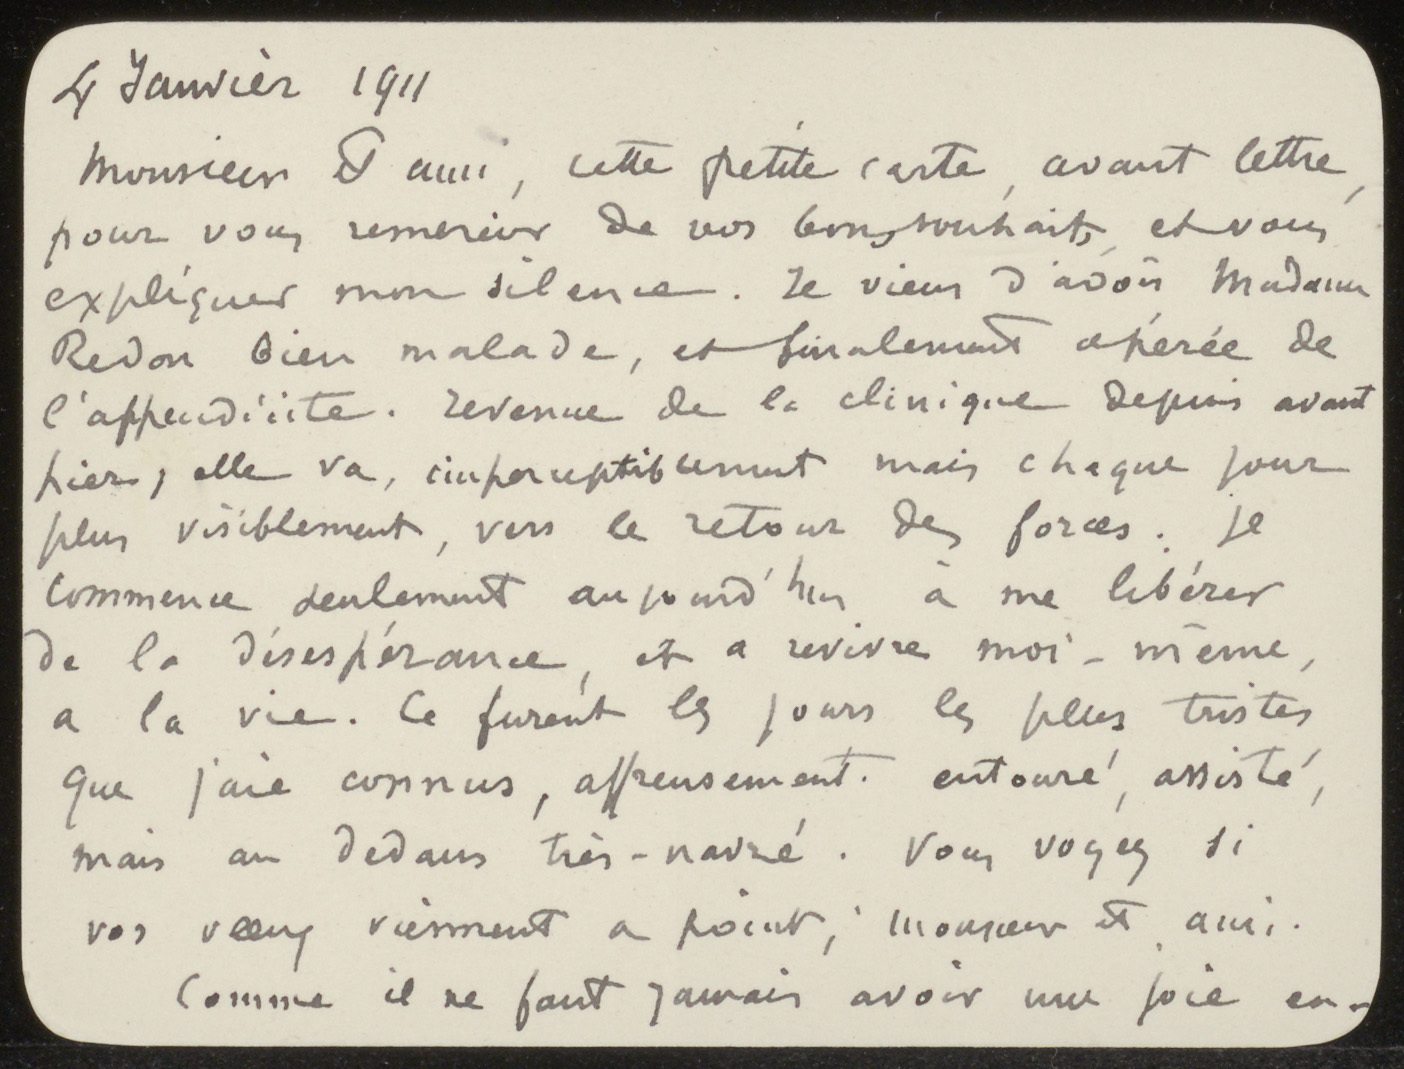 4 Janvier 1911
Monsieur et ami, cette petite carte, avant lettre,
pour vous remercier de vos bons souhaits, et vous
expliquer mon silence. Je viens d'avoir Madame
Redon bien malade, et finalement opérée de
l'appendicite. revenue de la clinique depuis avant
hier, elle va, imperceptiblement mais chaque jour
plus visiblement, vers le retour des forces. je
commence seulement aujourd'hui à me libérer
de la désespérance, et a revivre moi-même,
a la vie. Ce furent les jours les plus tristes
que j'aie connus, affreusement. entouré, assisté,
mais au dedans très-navré. Vous voyez si
vos vœux viennent a point, monsieur et ami.
Comme il ne faut jamais avoir une joie en-